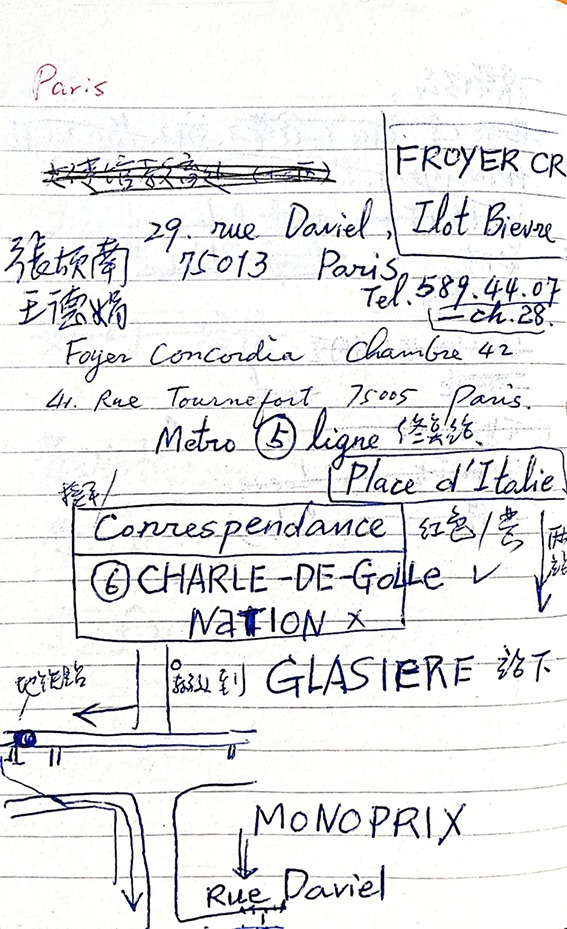 Paris
FROYER CR
Ilot Bievre
29. rue Daviel,
75013 Paris
Tel. 589.44.07
ch.28.
王德娟
Foyer Concordia Chambre 42
41. Rue Tournefort 75005 Paris.
Metro ⑤ ligne 终点站
Place d'Italie
Correspendance
红色/
⑥ CHARLE-DE-GoLLe ✓
NATION x
两站
地铁站
到 GLASIERE 站下
MONOPRIX
Rue Daviel